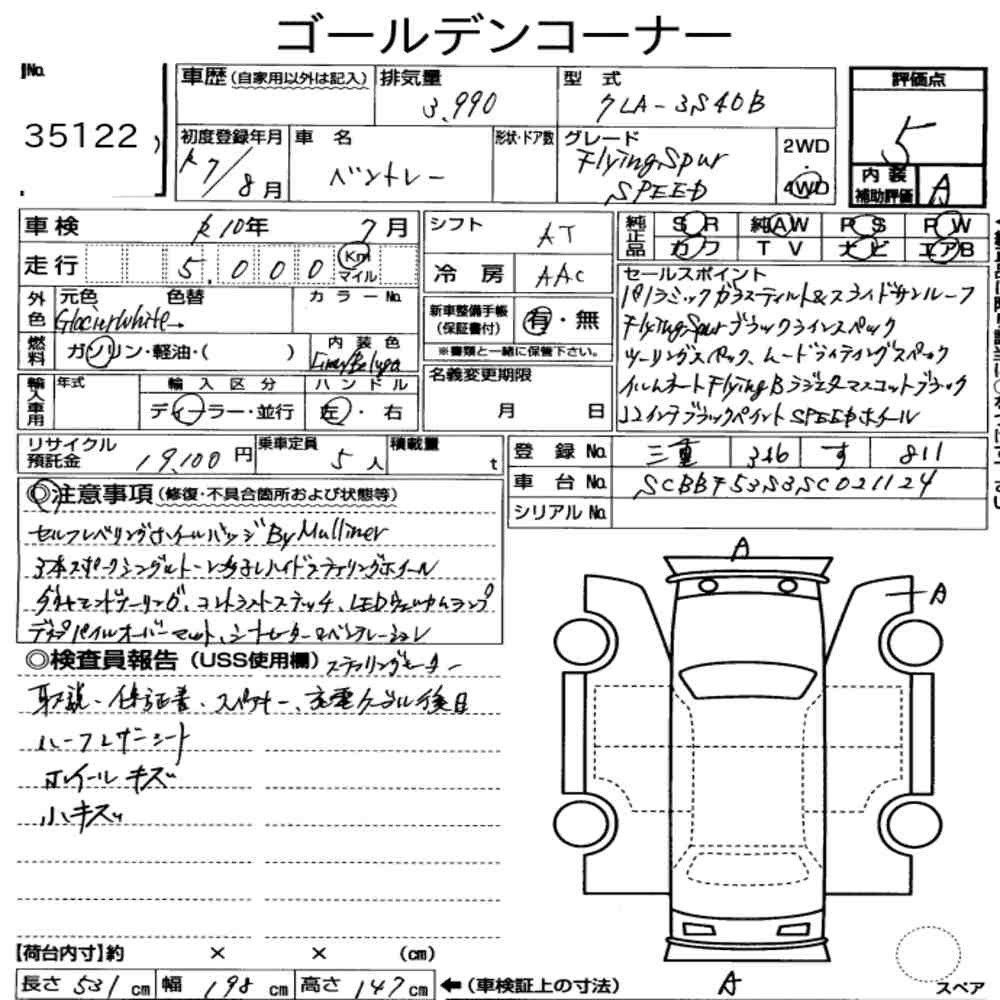 ゴールデンコーナー
No.
35122
車歴(自家用以外は記入)
排気量
3,990
型 式
7LA-3S40B
評価点
5
初度登録年月
R7/8月
車 名
ベントレー
形状・ドア数
グレード
Flying Spur
SPEED
2WD
4WD
内装
補助評価
A
車検
R10年 7月
走行
5,000
Km
マイル
外色
元色 色替
カラーNo.
Glacier White
燃料
ガソリン・軽油・( )
内 装 色
Linen/Beluga
輸入車用
年式
輸入区分
ディーラー・並行
ハンドル
左・右
シフト
AT
冷 房
AAC
新車整備手帳
(保証書付)
有・無
※書類と一緒に保管下さい。
名義変更期限
月 日
純正品
SR 純AW PS PW
カワ TV ナビ エアB
セールスポイント
パノラミックガラスティルト&スライドサンルーフ
Flying Spurブラックラインスペック
ツーリングスペック、ムードライティングスペック
イルムオートFlying Bラジエターマスコットブラック
22インチブラックペイントSPEEDホイール
リサイクル
預託金
19,100円
乗車定員
5人
積載量
t
登 録 No.
三重 346 す 811
車 台 No.
SCBBF53S3SC021124
シリアル No.
◎注意事項(修復・不具合箇所および状態等)
セルフレベリングホイールバッジ By Mulliner
3本スポークシングルトーン ハイドステアリングホイール
ダイヤモンドキルティング、コントラストステッチ、LEDウェルカムランプ
ディープパイルオーバーマット、シートヒーター&ベンチレーション
◎検査員報告(USS使用欄)
ステアリングヒーター
取説・保証書・スペアキー、充電ケーブル後日
ハーフレザーシート
ホイールキズ
小キズ
A
A
A
【荷台内寸】約 × × (cm)
長さ 531 cm
幅 198 cm
高さ 147 cm
←(車検証上の寸法)
スペア